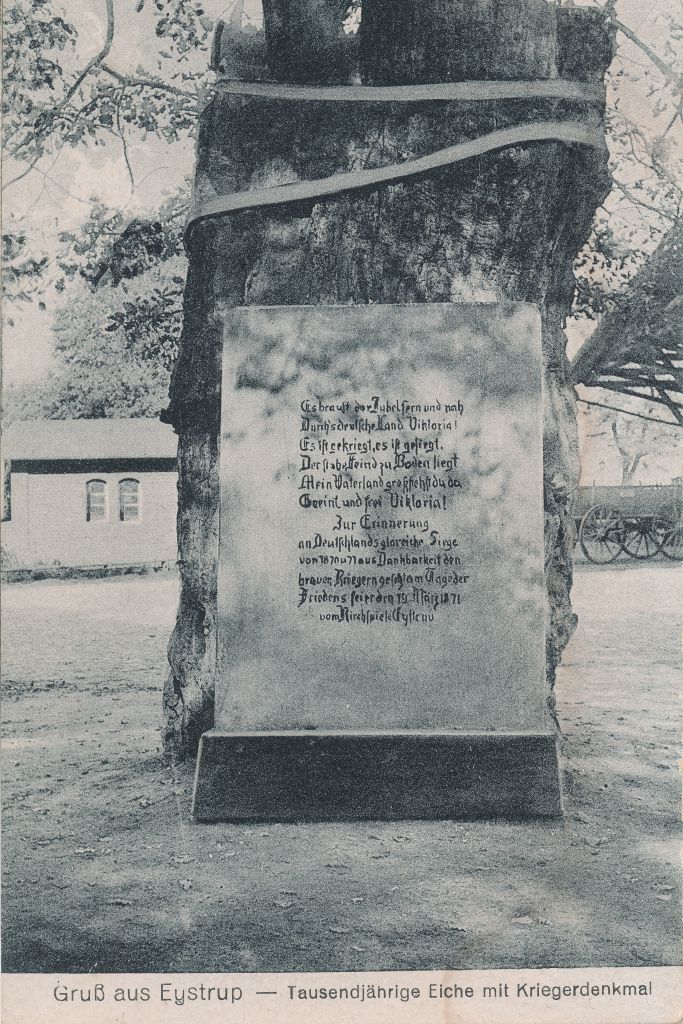 Es braust der Jubel fern und nah
Durchs deutsche Land Viktoria!
Es ist gekriegt, es ist gesiegt,
Der stolze Feind zu Boden liegt
Mein Vaterland groß stehst du da
Geeint und frei Viktoria!
Zur Erinnerung
an Deutschlands glorreiche Siege
von 1870 u 71 aus Dankbarkeit den
braven Kriegern am Tage der
Friedensfeier den 19. März 1871
vom Kirchspiele Eystrup
Gruß aus Eystrup — Tausendjährige Eiche mit Kriegerdenkmal